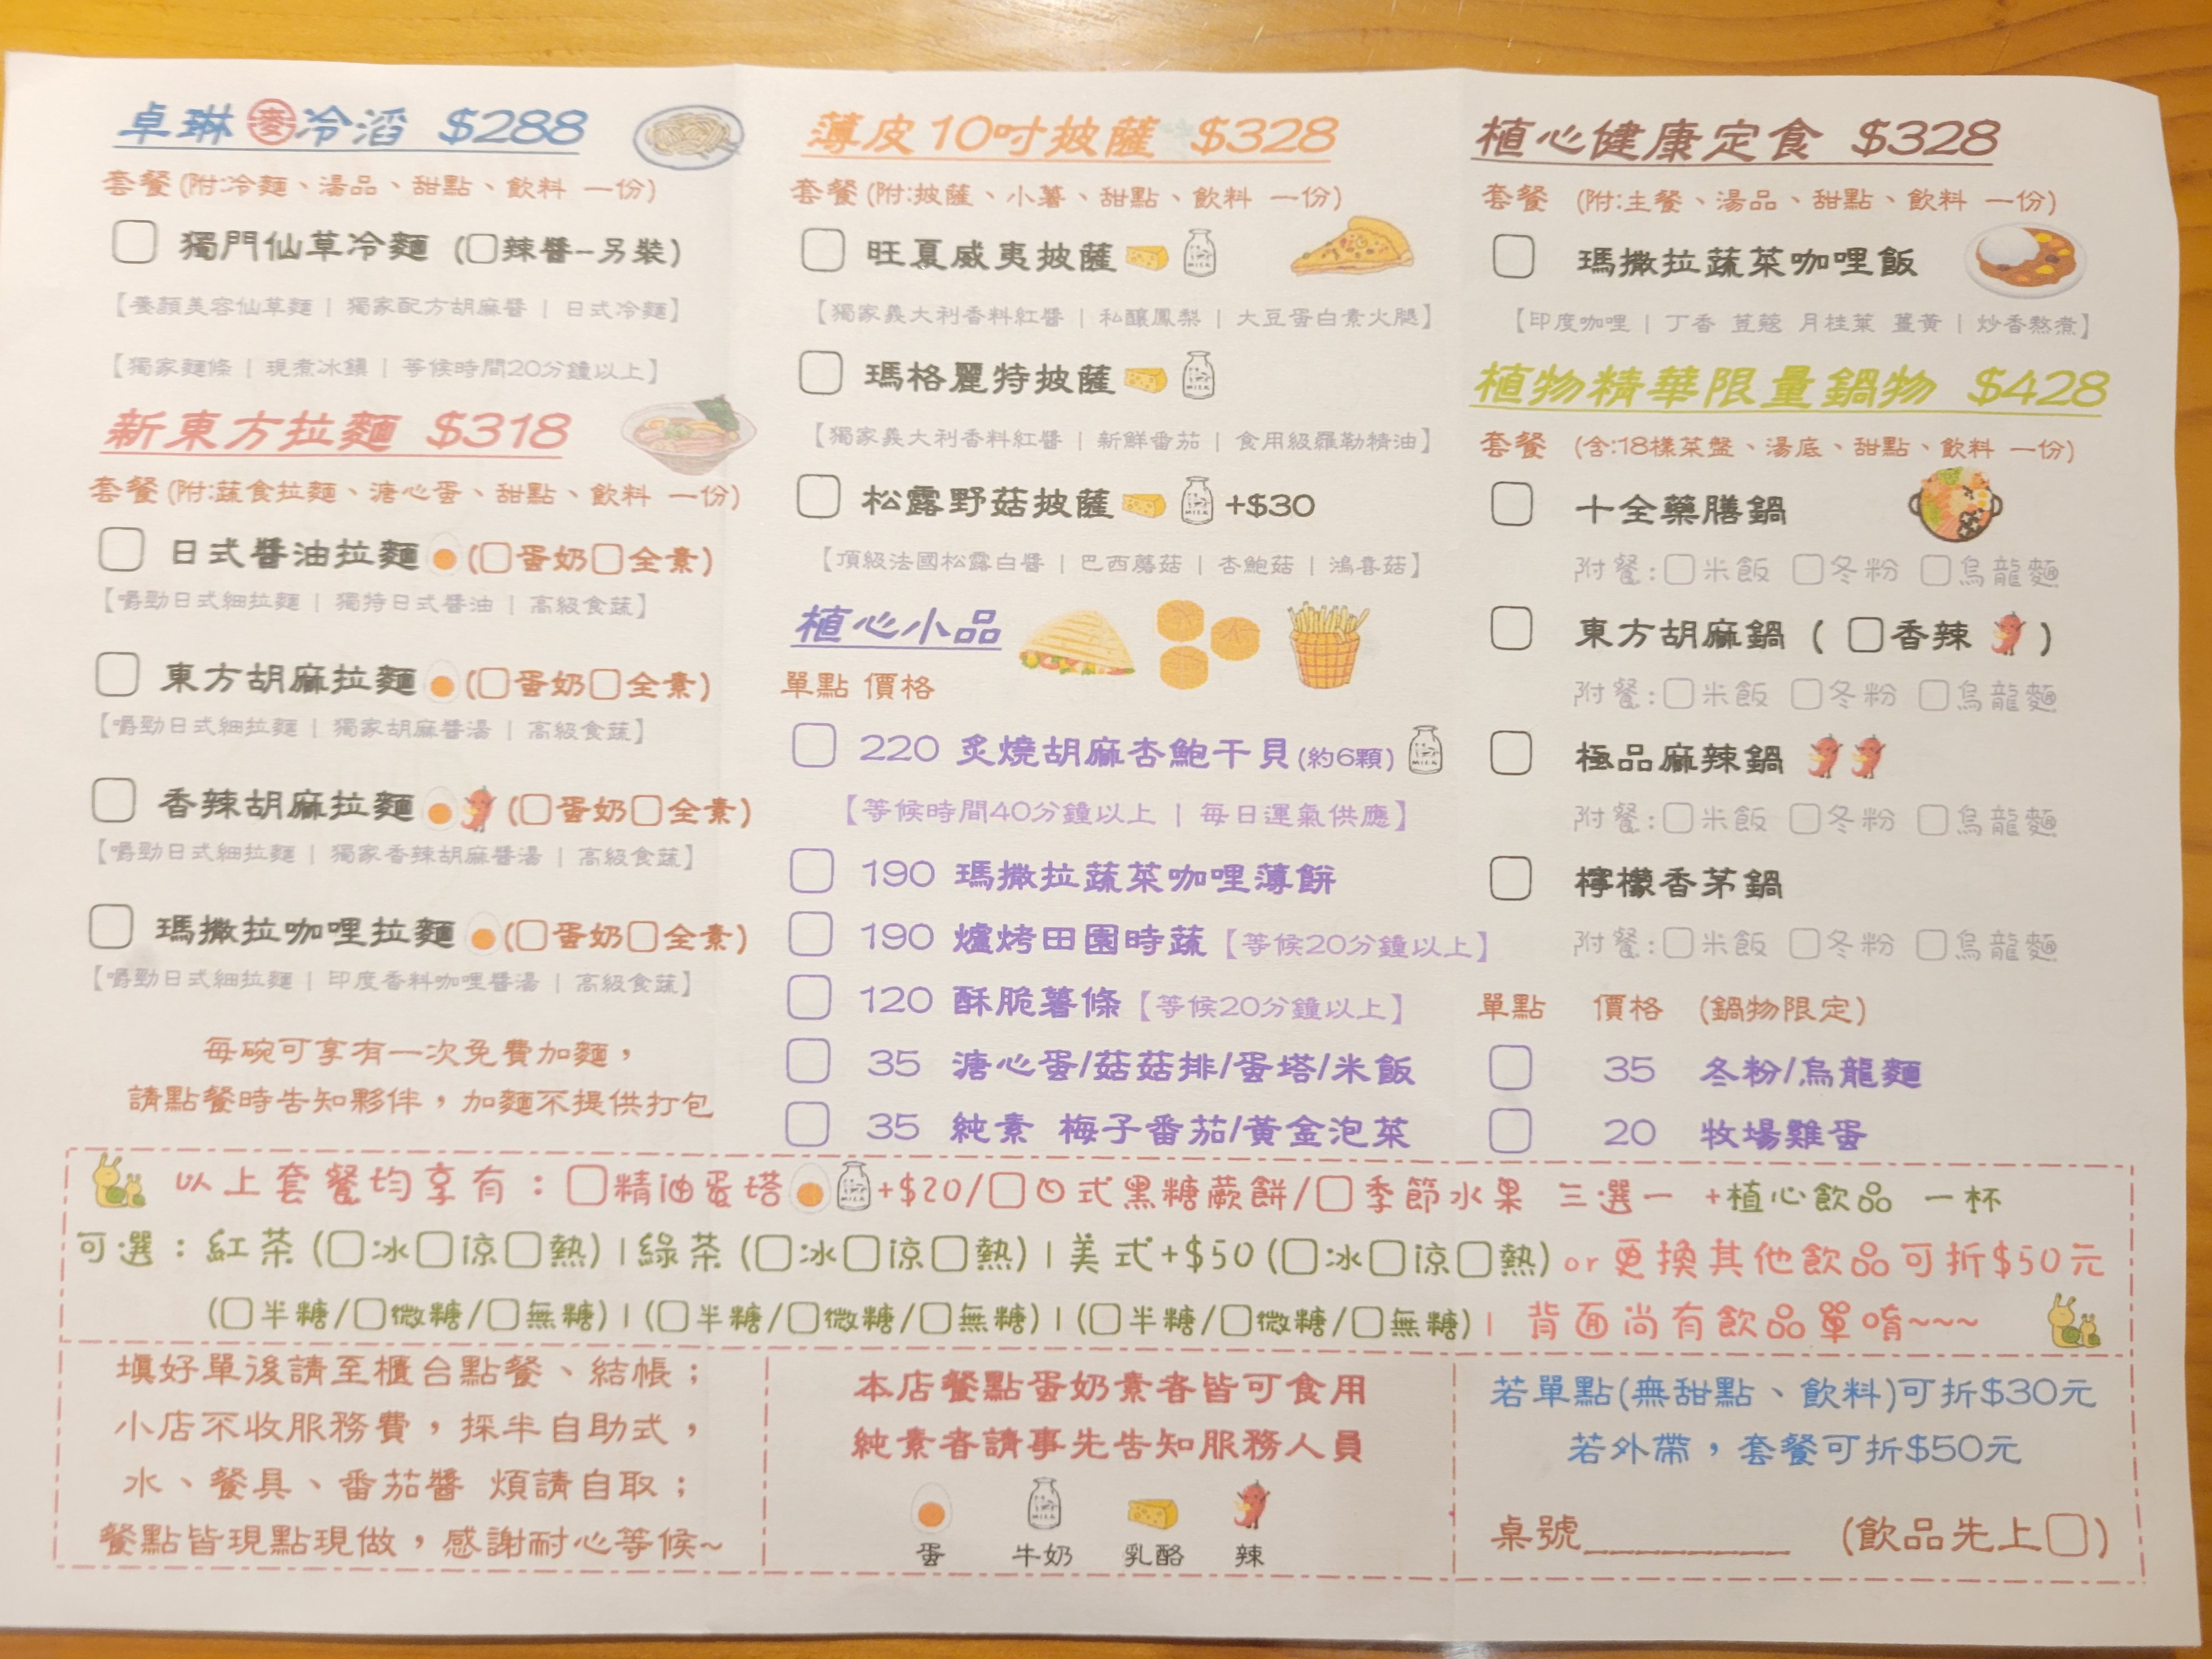 卓琳麥冷滔 $288
套餐(附:冷麵、湯品、甜點、飲料 一份)
□ 獨門仙草冷麵 (□辣醬-另裝)
【養顏美容仙草麵 | 獨家配方胡麻醬 | 日式冷麵】
【獨家麵條 | 現煮冰鎮 | 等候時間20分鐘以上】
新東方拉麵 $318
套餐(附:蔬食拉麵、溏心蛋、甜點、飲料 一份)
□ 日式醬油拉麵 (□蛋奶□全素)
【嚼勁日式細拉麵 | 獨特日式醬油 | 高級食蔬】
□ 東方胡麻拉麵 (□蛋奶□全素)
【嚼勁日式細拉麵 | 獨家胡麻醬湯 | 高級食蔬】
□ 香辣胡麻拉麵 (□蛋奶□全素)
【嚼勁日式細拉麵 | 獨家香辣胡麻醬湯 | 高級食蔬】
□ 瑪撒拉咖哩拉麵 (□蛋奶□全素)
【嚼勁日式細拉麵 | 印度香料咖哩醬湯 | 高級食蔬】
每碗可享有一次免費加麵，
請點餐時告知夥伴，加麵不提供打包
薄皮10吋披薩 $328
套餐(附:披薩、小薯、甜點、飲料 一份)
□ 旺夏威夷披薩 MILK
【獨家義大利香料紅醬 | 私釀鳳梨 | 大豆蛋白素火腿】
□ 瑪格麗特披薩 MILK
【獨家義大利香料紅醬 | 新鮮番茄 | 食用級羅勒精油】
□ 松露野菇披薩 MILK +$30
【頂級法國松露白醬 | 巴西蘑菇 | 杏鮑菇 | 鴻喜菇】
植心小品
單點 價格
□ 220 炙燒胡麻杏鮑干貝(約6顆) MILK
【等候時間40分鐘以上 | 每日運氣供應】
□ 190 瑪撒拉蔬菜咖哩薄餅
□ 190 爐烤田園時蔬【等候20分鐘以上】
□ 120 酥脆薯條【等候20分鐘以上】
□ 35 溏心蛋/菇菇排/蛋塔/米飯
□ 35 純素 梅子番茄/黃金泡菜
植心健康定食 $328
套餐 (附:主餐、湯品、甜點、飲料 一份)
□ 瑪撒拉蔬菜咖哩飯
【印度咖哩 | 丁香 荳蔻 月桂葉 薑黃 | 炒香熬煮】
植物精華限量鍋物 $428
套餐 (含:18樣菜盤、湯底、甜點、飲料 一份)
□ 十全藥膳鍋
附餐:□米飯 □冬粉 □烏龍麵
□ 東方胡麻鍋 ( □香辣 )
附餐:□米飯 □冬粉 □烏龍麵
□ 極品麻辣鍋
附餐:□米飯 □冬粉 □烏龍麵
□ 檸檬香茅鍋
附餐:□米飯 □冬粉 □烏龍麵
單點 價格 (鍋物限定)
□ 35 冬粉/烏龍麵
□ 20 牧場雞蛋
以上套餐均享有：□精油蛋塔 MILK +$20/□日式黑糖蕨餅/□季節水果 三選一 +植心飲品 一杯
可選：紅茶(□冰□涼□熱) | 綠茶(□冰□涼□熱) | 美式+$50(□冰□涼□熱) or更換其他飲品可折$50元
(□半糖/□微糖/□無糖) | (□半糖/□微糖/□無糖) | (□半糖/□微糖/□無糖) | 背面尚有飲品單唷~~~
填好單後請至櫃台點餐、結帳；
小店不收服務費，採半自助式，
水、餐具、番茄醬 煩請自取；
餐點皆現點現做，感謝耐心等候~
本店餐點蛋奶素者皆可食用
純素者請事先告知服務人員
MILK
蛋 牛奶 乳酪 辣
若單點(無甜點、飲料)可折$30元
若外帶，套餐可折$50元
桌號________ (飲品先上□)